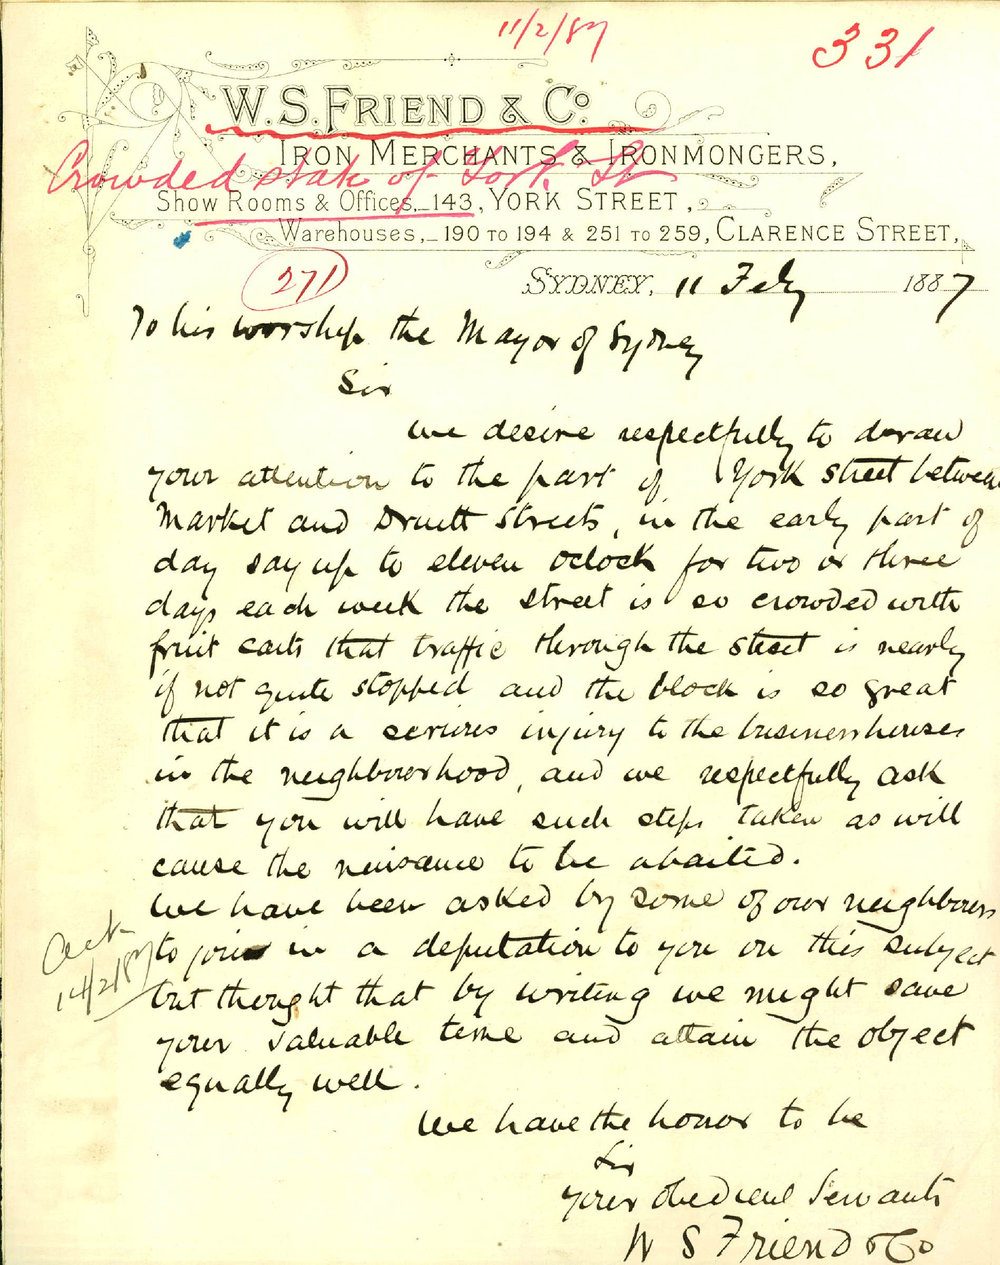 11/2/87
331
W. S. FRIEND & Co.
IRON MERCHANTS & IRONMONGERS,
Crowded state of York St
Show Rooms & Offices,_143, YORK STREET,
Warehouses,_190 TO 194 & 251 TO 259, CLARENCE STREET,
271
SYDNEY, 11 Feby 1887
To his worship the Mayor of Sydney
Sir
We desire respectfully to draw
your attention to the part of York street between
Market and Druitt Streets, in the early part of
day say up to eleven oclock for two or three
days each week the street is so crowded with
fruit carts that traffic through the street is nearly
if not quite stopped and the block is so great
that it is a serious injury to the business houses
in the neighbourhood, and we respectfully ask
that you will have such steps taken as will
cause the nuisance to be abaited.
We have been asked by some of our neighbours
to join in a deputation to you on this subject
Ack
14/2/87
but thought that by writing we might save
your valuable time and attain the object
equally well.
We have the honor to be
Sir
your obedient Servants
W S Friend & Co